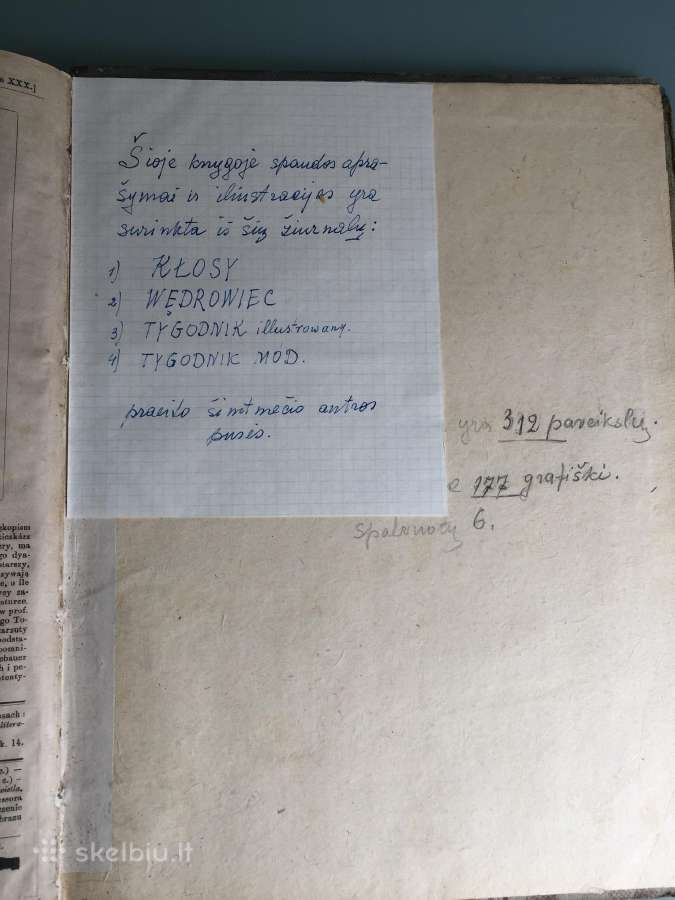 XXX-
Šioje knygoje spaudos apra-
šymai ir iliustracijos yra
surinkta iš šių žiurnalų:
1) KŁOSY
2) WĘDROWIEC
3) TYGODNIK illustrowany.
4) TYGODNIK MÓD.
praeito šimtmečio antros
pusės.
yra 312 paveikslų.
177 grafiški.
Spalvuotų 6.
ery, ma
go dya-
starszy,
zywają
e, o ile
rsy za-
w prof.
go To-
arzuty
podsta-
pomni-
sbauer
h i pe-
tenty-
sach:
litera-
k. 14.
wietła,
ssora
szenie
brazu
skelbiu.lt